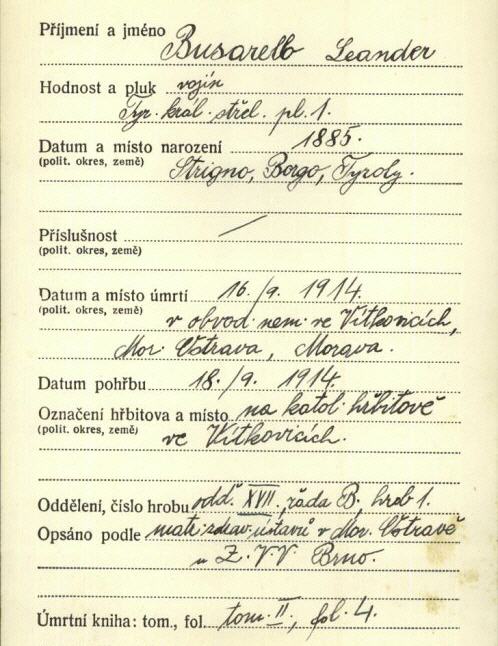 Příjmení a jméno Busarello Leander
Hodnost a pluk vojín
Tyr. král. střel. pl. 1.
Datum a místo narození 1885.
(polit. okres, země) Strigno, Borgo, Tyroly.
Příslušnost /
(polit. okres, země)
Datum a místo úmrtí 16./9. 1914.
(polit. okres, země) v obvod. nem. ve Vítkovicích,
Mor. Ostrava, Morava.
Datum pohřbu 18./9. 1914.
Označení hřbitova a místo na katol. hřbitově
(polit. okres, země) ve Vítkovicích.
Oddělení, číslo hrobu odd. XVII, řada B, hrob 1.
Opsáno podle matr. zdrav. ústavů v Mor. Ostravě
u Z. V. V. Brno.
Úmrtní kniha: tom., fol. tom. II, fol. 4.